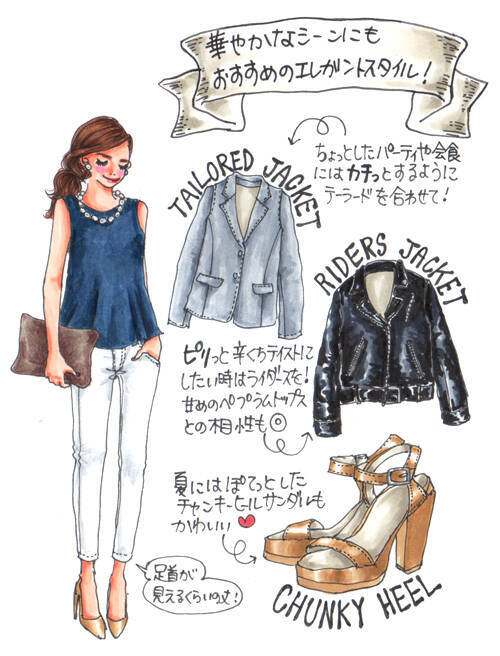 華やかなシーンにも
おすすめのエレガントスタイル!
ちょっとしたパーティや会食
にはカチっとするように
テーラードを合わせて!
TAILORED JACKET
RIDERS JACKET
ピリっと辛くちテイストに
したい時はライダースを!
甘めのペプラムトップス
との相性も◎
夏にはぽてっとした
チャンキーヒールサンダルも
かわいい♥
足首が
見えるくらいの丈!
CHUNKY HEEL